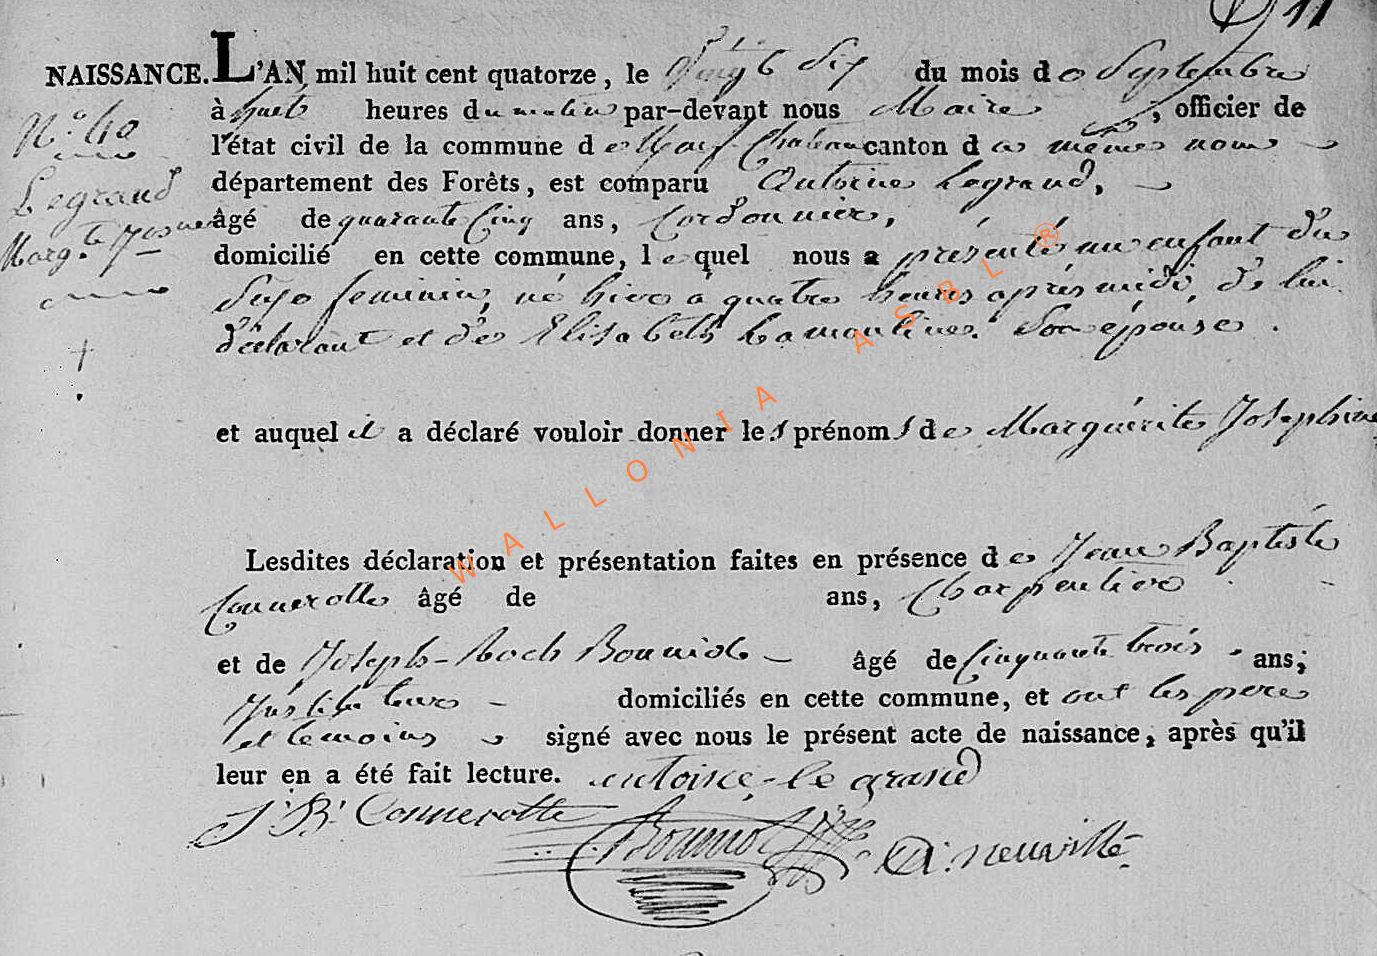 11
NAISSANCE. L'AN mil huit cent quatorze, le Vingt Six du mois de Septembre
N.° 40
à huit heures du matin par-devant nous Maire, officier de
l'état civil de la commune de Neufchâteau canton du meme nom
Legrand
département des Forêts, est comparu Antoine Legrand,
Marg.te
âgé de quarante Cinq ans, Cordonnier,
domicilié en cette commune, lequel nous a présenté un enfant du
Sexe feminin, né hier à quatre heures après midi, de lui
déclarant et de Elisabeth Lamouline. Son épouse.
et auquel il a déclaré vouloir donner les prénoms de Marguérite Josephine
Lesdites déclaration et présentation faites en présence de Jean Baptiste
Connerotte âgé de ans, Charpentier
et de Joseph-Roch Bonniol âgé de Cinquante trois ans;
Instituteur domiciliés en cette commune, et ont les pere
et temoins signé avec nous le présent acte de naissance, après qu'il
leur en a été fait lecture. antoine le grand
J. B. Connerotte
Bonniol
neuville
WALLONIA ASBL ®